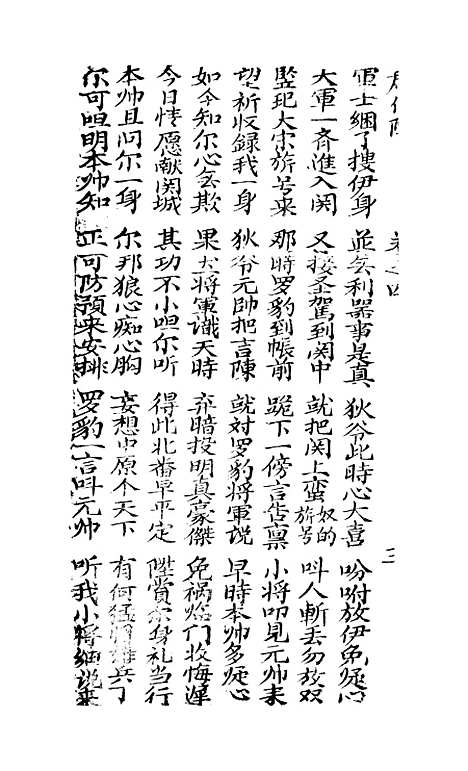 軍士綑了搜伊身 並無利器事是真 狄爷此时心大喜 吩咐放伊免疑心
大軍一斉進入関 又接圣駕到関中 就把関上蛮奴的旂号 呌人斬丢勿放双
竪玘大宋旂号来 那時罗豹到帳前 跪下一傍言告禀 小將叩見元帅来
望祈收録我一身 狄爷元帥把言陳 就对罗豹將軍说 早時本帅多疑心
如今知尔心無欺 果然將軍識天時 弃暗投明真豪傑 免祸临门收悔遲
今日情愿献関城 其功不小咀尔听 得此北番早平定 陞賞尔身礼当行
本帅且问尔一身 尔邦狼心痴心胸 妄想中原个天下 有何猛將雄兵丁
尔可咀明本帅知 正可防預来安排 罗豹一言呌元帅 听我小將細说来
三